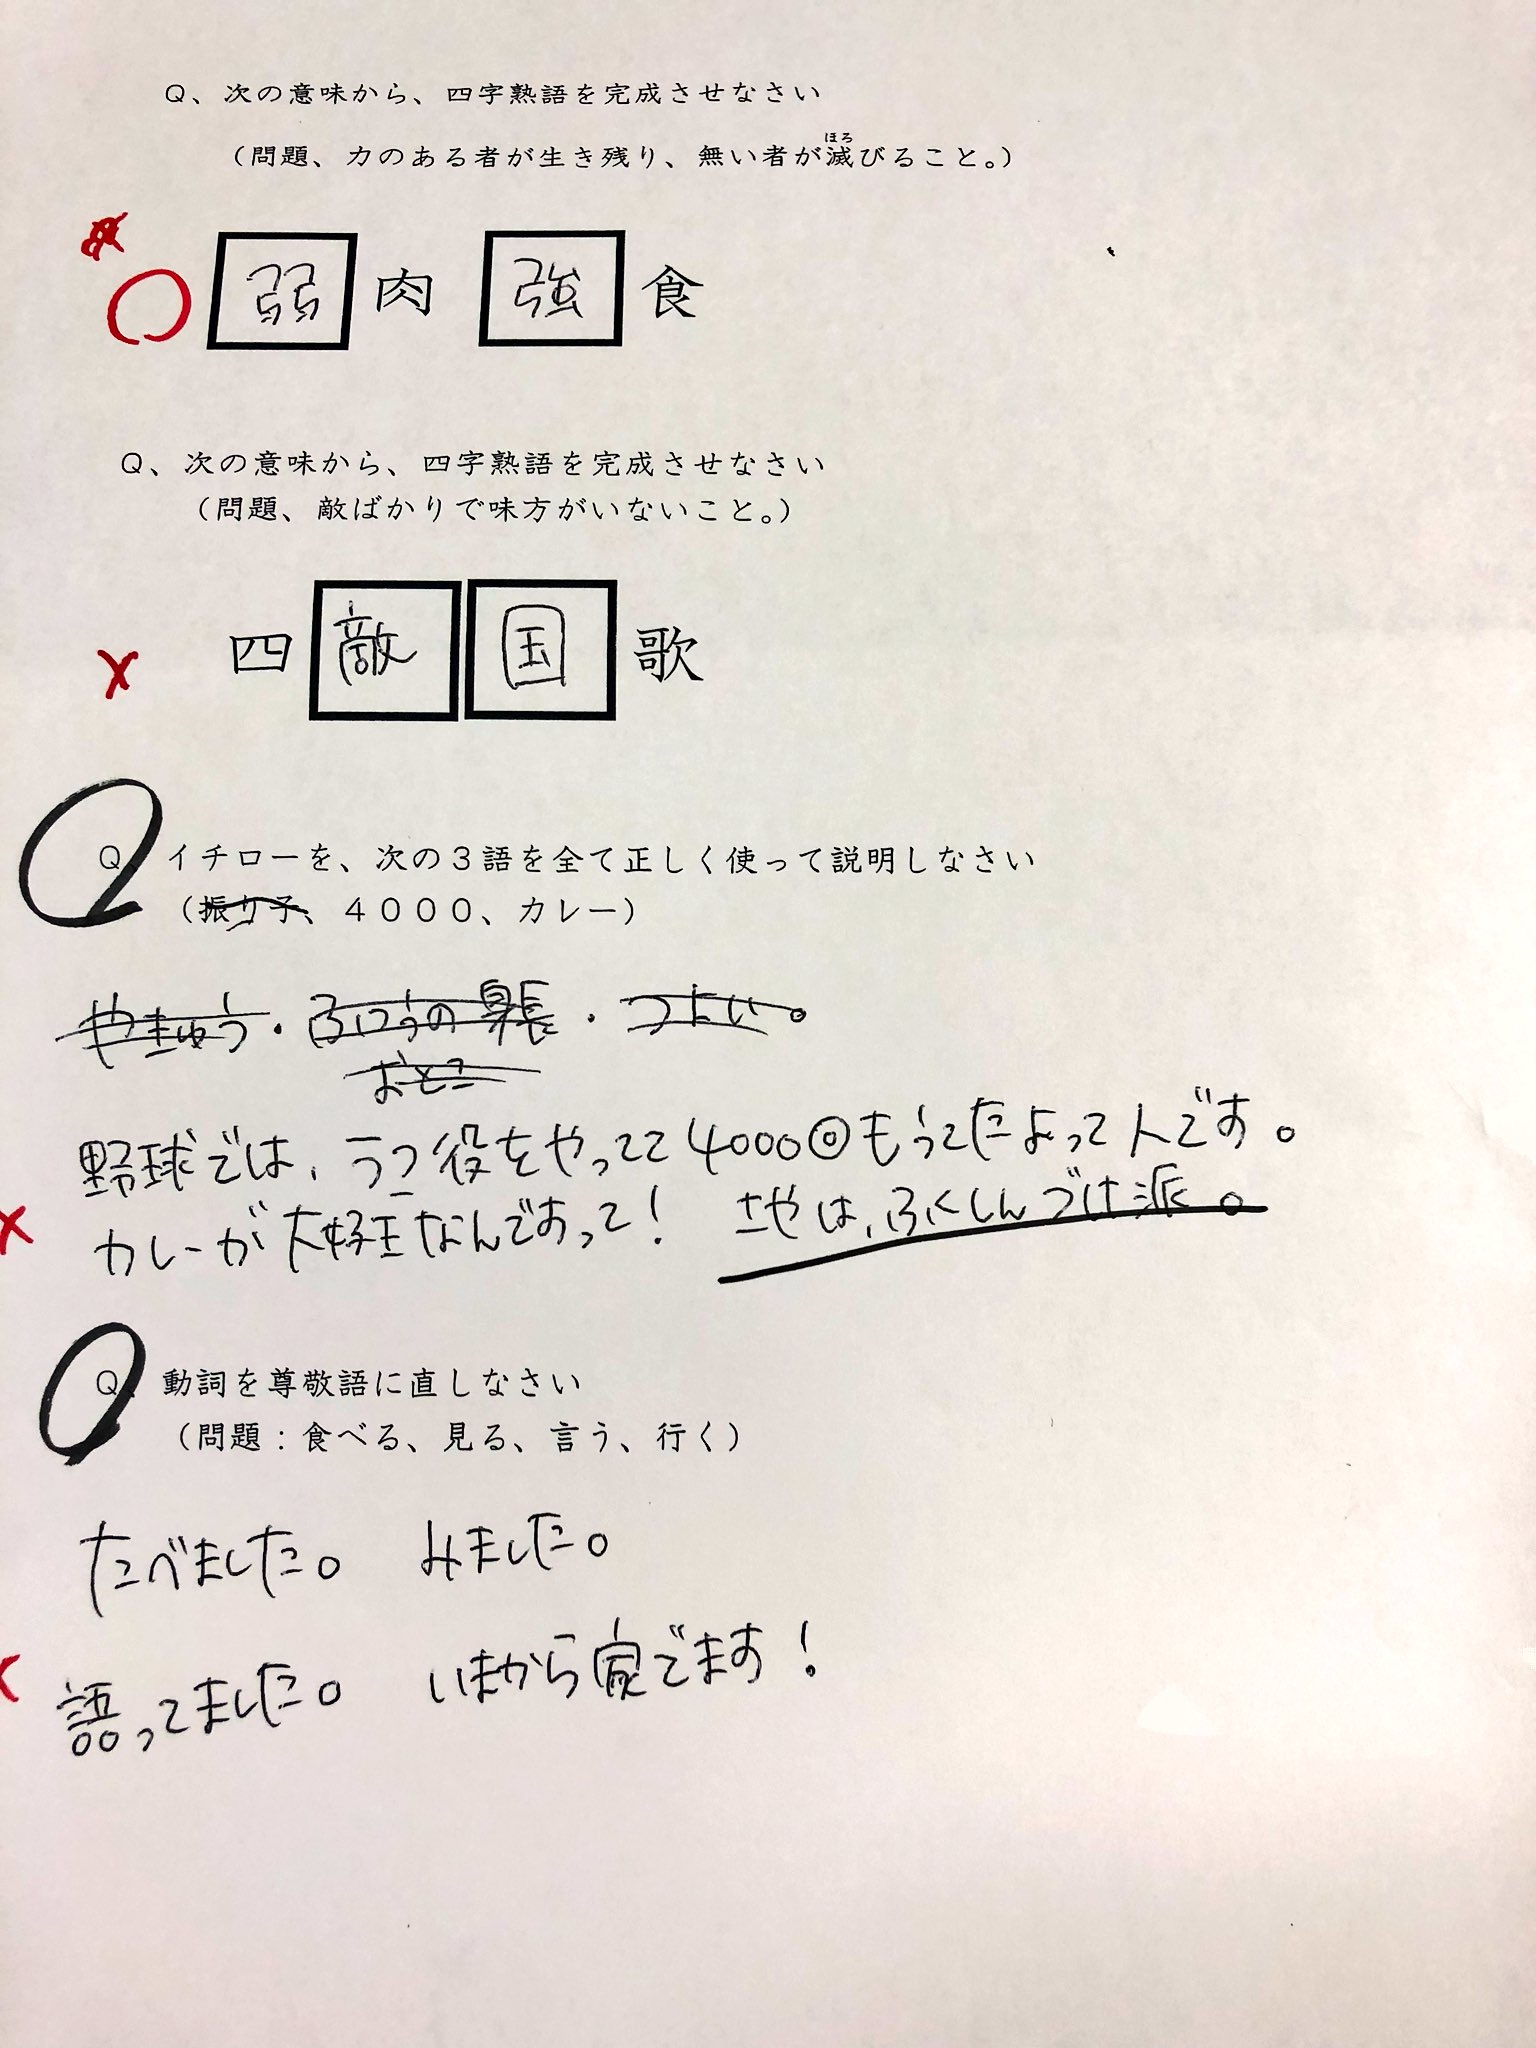 Q、次の意味から、四字熟語を完成させなさい
（問題、力のある者が生き残り、無い者が滅びることと。）
弱肉強食
Q、次の意味から、四字熟語を完成させなさい
（問題、敵ばかりで味方がいないこと。）
四敵国歌
Q、イチローを、次の３語を全て正しく使って説明しなさい
（振り子、４０００、カレー）
やきゅう・ふつうの身長・つよい。
おとこ
野球では、うつ役をやってて4000回もうてたよって人です。
カレーが大好きなんであって！ は、ふくしんづけ派。
Q 動詞を尊敬語に直しなさい
（問題：食べる、見る、言う、行く）
たべました。 みました。
語ってました。 いまから家でます！